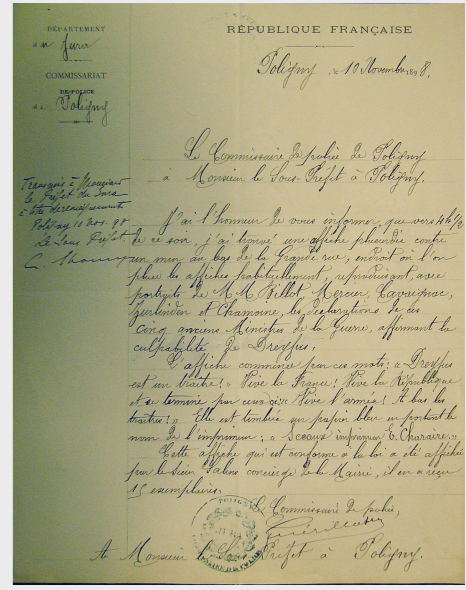 DÉPARTEMENT
du Jura
COMMISSARIAT
DE POLICE
de Poligny
RÉPUBLIQUE FRANÇAISE
Poligny, le 10 Novembre 1898,
Le Commissaire de police de Poligny
à Monsieur le Sous-Préfet à Poligny.
Transmis à Monsieur
le Préfet du Jura
à titre de renseignements
Poligny 10 Nov. 98
Le Sous Préfet
J'ai l'honneur de vous informer que vers 4h 1/2
de ce soir, j'ai trouvé une affiche placardée contre
un mur au bas de la Grande rue, endroit où l'on
place les affiches habituellement, reproduisant avec
portraits de M.M. Billot, Mercier, Cavaignac,
Zurlinden et Chanoine, les déclarations de ces
cinq anciens Ministres de la Guerre, affirmant la
culpabilité de Dreyfus.
L'affiche commence par ces mots: « Dreyfus
est un traître! » Vive la France! Vive la République
et se termine par ceux-ci: « Vive l'armée! A bas les
traîtres! » Elle est timbrée sur papier bleu en portant le
nom de l'imprimeur: « Sceaux imprimeur E. Charaire. »
Cette affiche qui est conforme à la loi a été affichée
par le sieur concierge de la Mairie, il en a reçu
15 exemplaires.
Le Commissaire de police,
POLIGNY
A Monsieur le Sous-Préfet à Poligny.